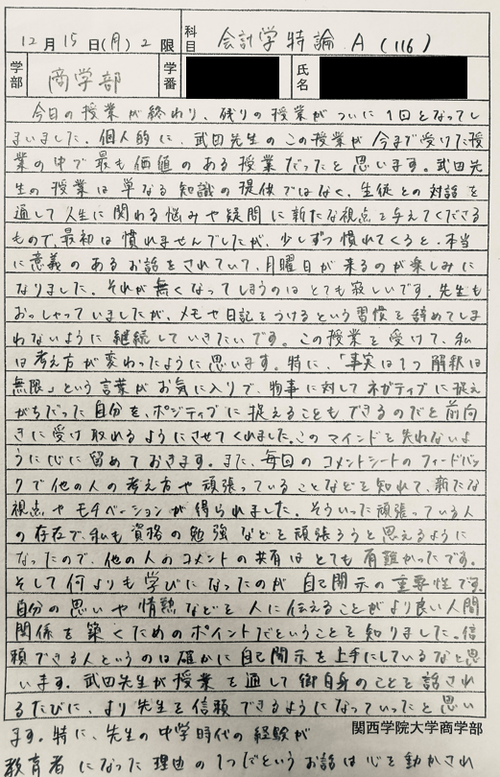 12月15日(月)2限 科目 会計学特論A(116)
学部 商学部 学番 氏名
今日の授業が終わり、残りの授業がついに1回となってし
まいました。個人的に、武田先生のこの授業が今まで受けた授
業の中で最も価値のある授業だったと思います。武田先
生の授業は単なる知識の提供ではなく、生徒との対話を
通して人生に関わる悩みや疑問に新たな視点を与えてくださる
もので、最初は慣れませんでしたが、少しずつ慣れてくると、本当
に意義のあるお話をされていて、月曜日が来るのが楽しみに
なりました。それが無くなってしまうのはとても寂しいです。先生も
おっしゃっていましたが、メモや日記をつけるという習慣を辞めてしま
わないように継続していきたいです。この授業を受けて、私
は考え方が変わったように思います。特に、「事実は1つ解釈は
無限」という言葉がお気に入りで、物事に対してネガティブに捉え
がちだった自分を、ポジティブに捉えることもできるのだと前向
きに受け取れるようにさせてくれました。このマインドを失れないよ
うに心に留めておきます。また、毎回のコメントシートのフィードバッ
クで他の人の考え方や頑張っていることなどを知れて、新たな
視点やモチベーションが得られました。そういった頑張っている人
の存在で、私も資格の勉強などを頑張ろうと思えるように
なったので、他の人のコメントの共有はとても有難かったです。
そして何よりも学びになったのが自己開示の重要性です。
自分の思いや情熱などを人に伝えることがより良い人間
関係を築くためのポイントだということを知りました。信
頼できる人というのは確かに自己開示を上手にしているなと思
います。武田先生が授業を通して御自身のことを話され
るたびに、より先生を信頼できるようになっていったと思い
ます。特に、先生の中学時代の経験が
関西学院大学商学部
教育者になった理由の1つだというお話は心を動かされ